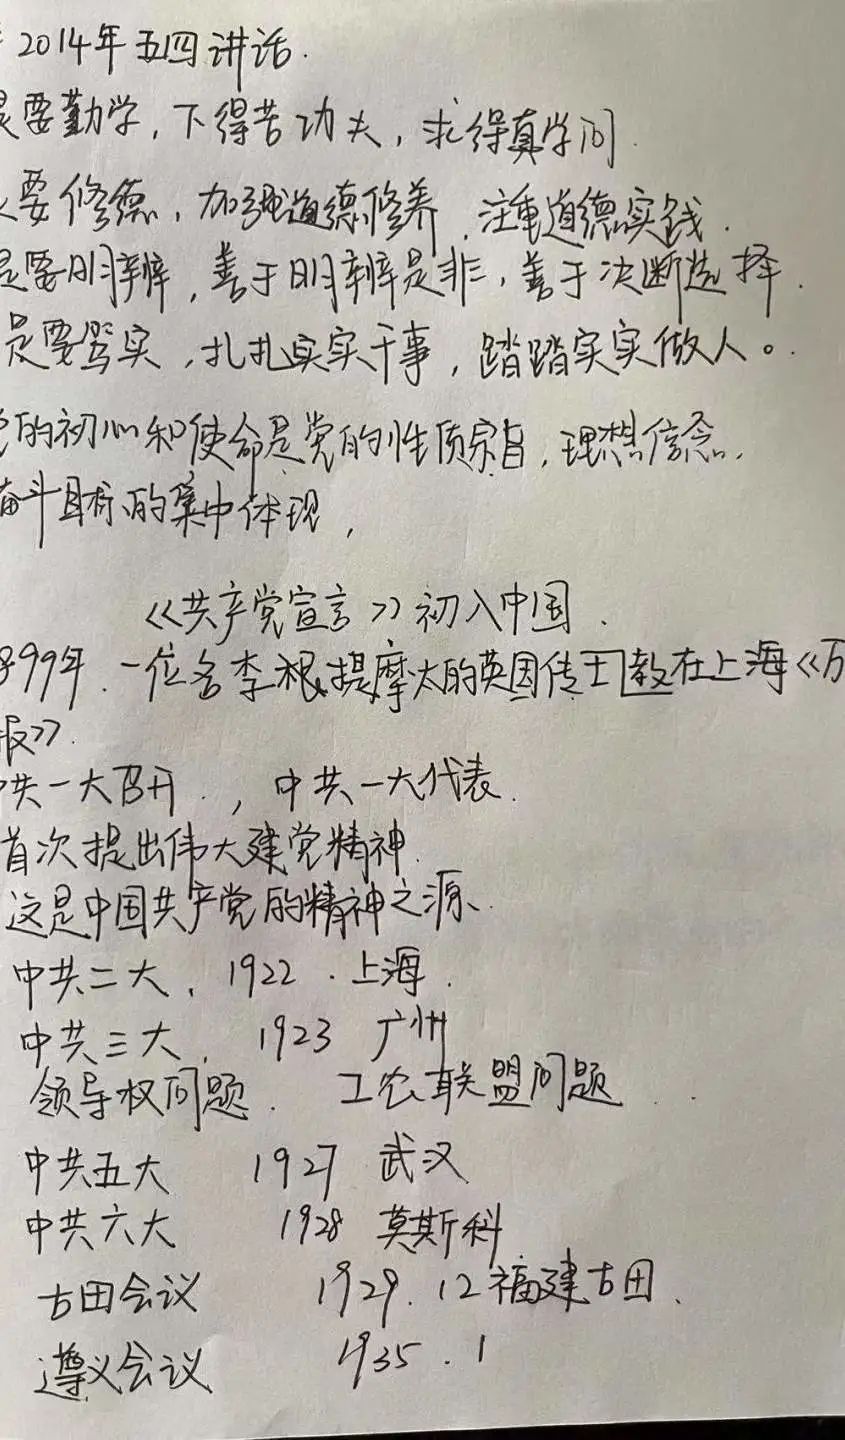 2014年五四讲话.
是要勤学,下得苦功夫,求得真学问.
要修德,加强道德修养,注重道德实践.
是要明辨,善于明辨是非,善于决断选择.
是要笃实,扎扎实实干事,踏踏实实做人。
党的初心和使命是党的性质宗旨,理想信念,
奋斗目标的集中体现,
《共产党宣言》初入中国.
899年.一位名李根提摩太的英国传士教在上海《万
报》.
中共一大召开.,中共一大代表.
首次提出伟大建党精神.
这是中国共产党的精神之源、
中共二大、1922.上海.
中共三大、1923 广州
领导权问题. 工农联盟问题..
中共五大 1927 武汉
中共六大 1928 莫斯科
古田会议 1929.12福建古田、
遵义会议 1935.1